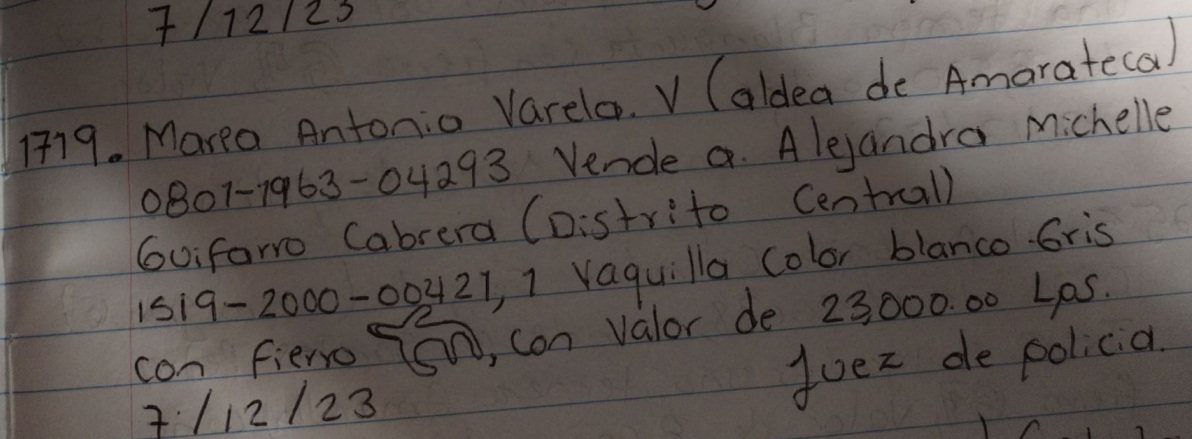 7/12/23
1719. Marco Antonio Varela. V (aldea de Amarateca)
0801-1963-04293 Vende a. Alejandra Michelle
Guifarro Cabrera (Distrito Central)
1519-2000-00421, 1 vaquilla color blanco-Gris
con fierro , con valor de 23,000.00 Lps.
7/12/23 Juez de policia.